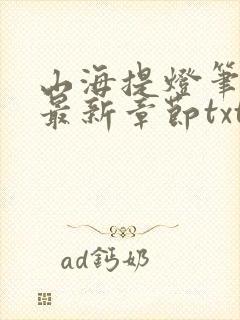 山海提燈筆
最新章節txt
ad鈣奶